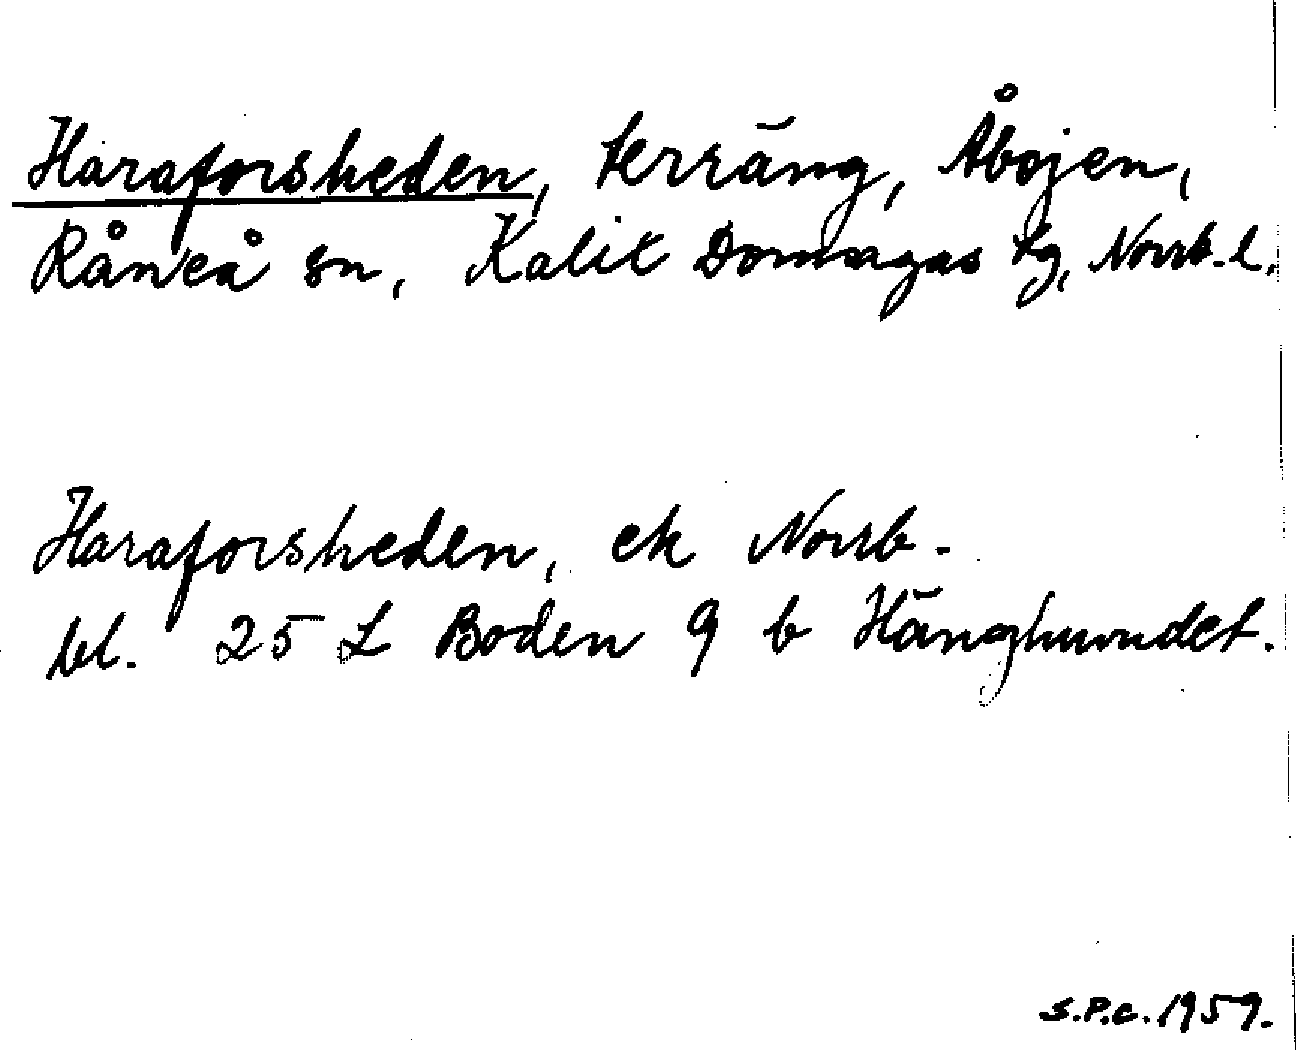 Haraforsheden, terräng, Åbojen,
Råneå sn, Kalix Domsagas tg, Norrb. l.
Haraforsheden, ek Norrb.
bl. 25 L Boden 9 b Hänghundet.
S.P.C. 1959.